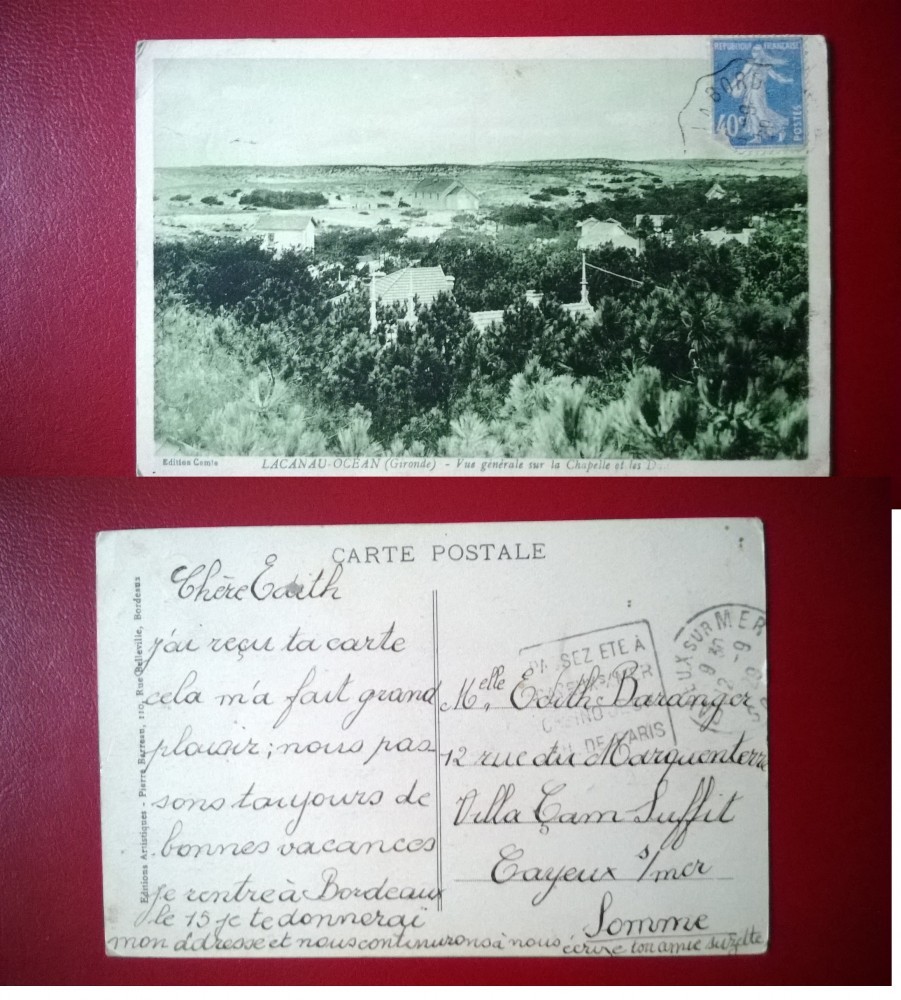 RÉPUBLIQUE FRANÇAISE
40c
POSTES
BORD
Edition Comte
LACANAU-OCÉAN (Gironde) - Vue générale sur la Chapelle et les
CARTE POSTALE
Editions Artistiques - Pierre Barreau, 110, Rue Belleville, Bordeaux
Chère Edith
j'ai reçu ta carte
cela m'a fait grand
plaisir; nous pas-
sons toujours de
bonnes vacances
je rentre à Bordeaux
le 15 je te donnerai
mon adresse et nous continurons à nous écrire ton amie suzette
SEZ ETE À
DE PARIS
EUX SUR MER
Melle Edith Baranger
12 rue du Marquenterre
Villa Çam Suffit
Cayeux s/mer
Somme